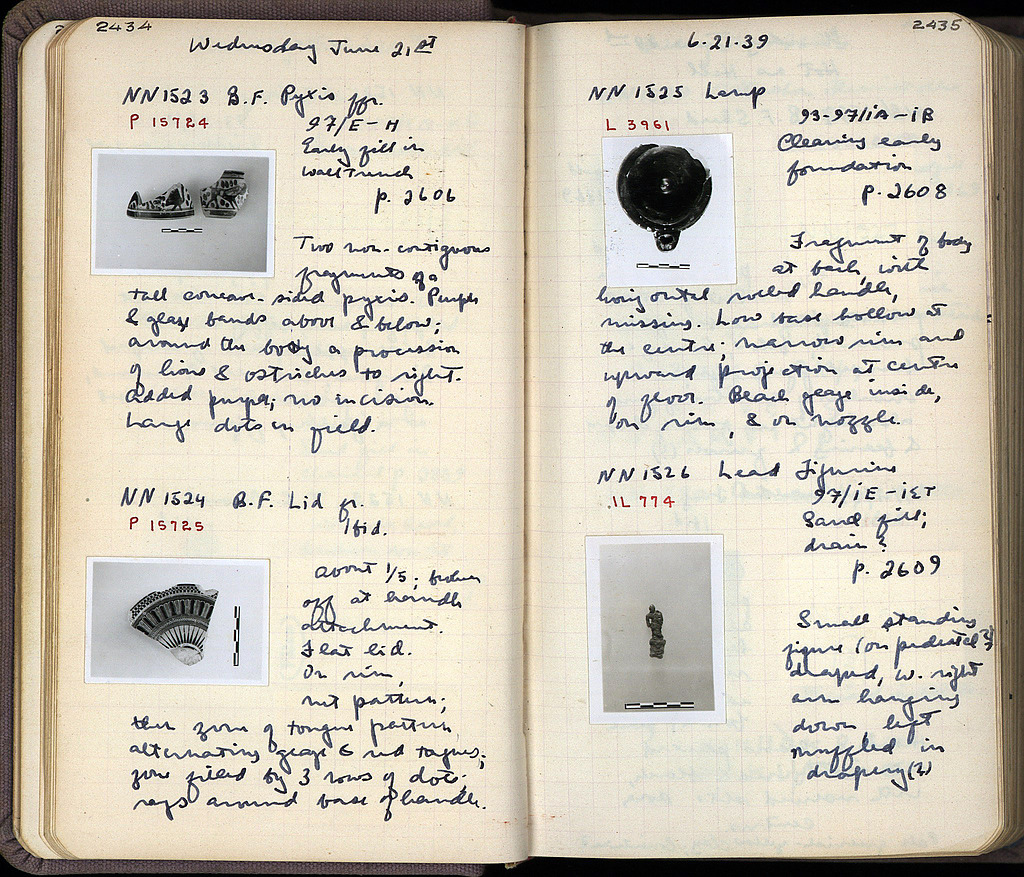 2434
Wednesday June 21st
NN 1523 B.F. Pyxis fr.
P 15724
97/E-H
Early fill in
wall trench
p. 2606
Two non-contiguous
fragments of a
tall concave-sided pyxis. Purple
& glaze bands above & below;
around the body a procession
of lions & ostriches to right.
added purple; no incision.
Large dots in field.
NN 1524 B.F. Lid fr.
P 15725
Ibid.
about 1/5; broken
off at handle
attachment.
Flat lid.
On rim,
net pattern;
then zone of tongue pattern
alternating glaze & red tongues;
zone filled by 3 rows of dots.
rays around base of handle.
2435
6-21-39
NN 1525 Lamp
L 3961
93-97/iA-iB
Cleaning early
foundation
p. 2608
Fragment of body
at back, with
horizontal rolled handle,
missing. Low base hollow at
the centre; narrow rim and
upward projection at centre
of floor. Black glaze inside,
on rim, & on nozzle.
NN 1526 Lead Figurine
IL 774
97/iE-iST
Sand fill;
drain?
p. 2609
Small standing
figure (on pedestal?)
draped, w. right
arm hanging
down, left
muffled in
drapery(?)